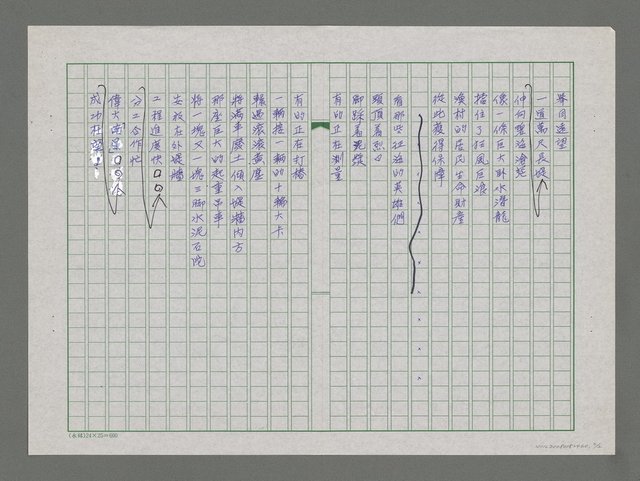 舉目遠望
一道萬尺長堤
伸向蠻荒滄茫
像一條巨大卧水潛龍
擋住了狂風巨浪
漁村的居民生命財產
從此獲得保障
有那些壯治的英雄們
頭頂着烈日
腳踩着泥漿
有的正在測量
有的正在打樁
一輛接一輛的十輪大卡
輾過滾滾黃塵
將滿車廢土傾入堤牆內方
那座巨大的起重吊車
將一塊又一塊三腳水泥石陀
安放在外堤牆
工程進度快口口
分工合作忙
偉大
成功在望
(永林)24×25=600